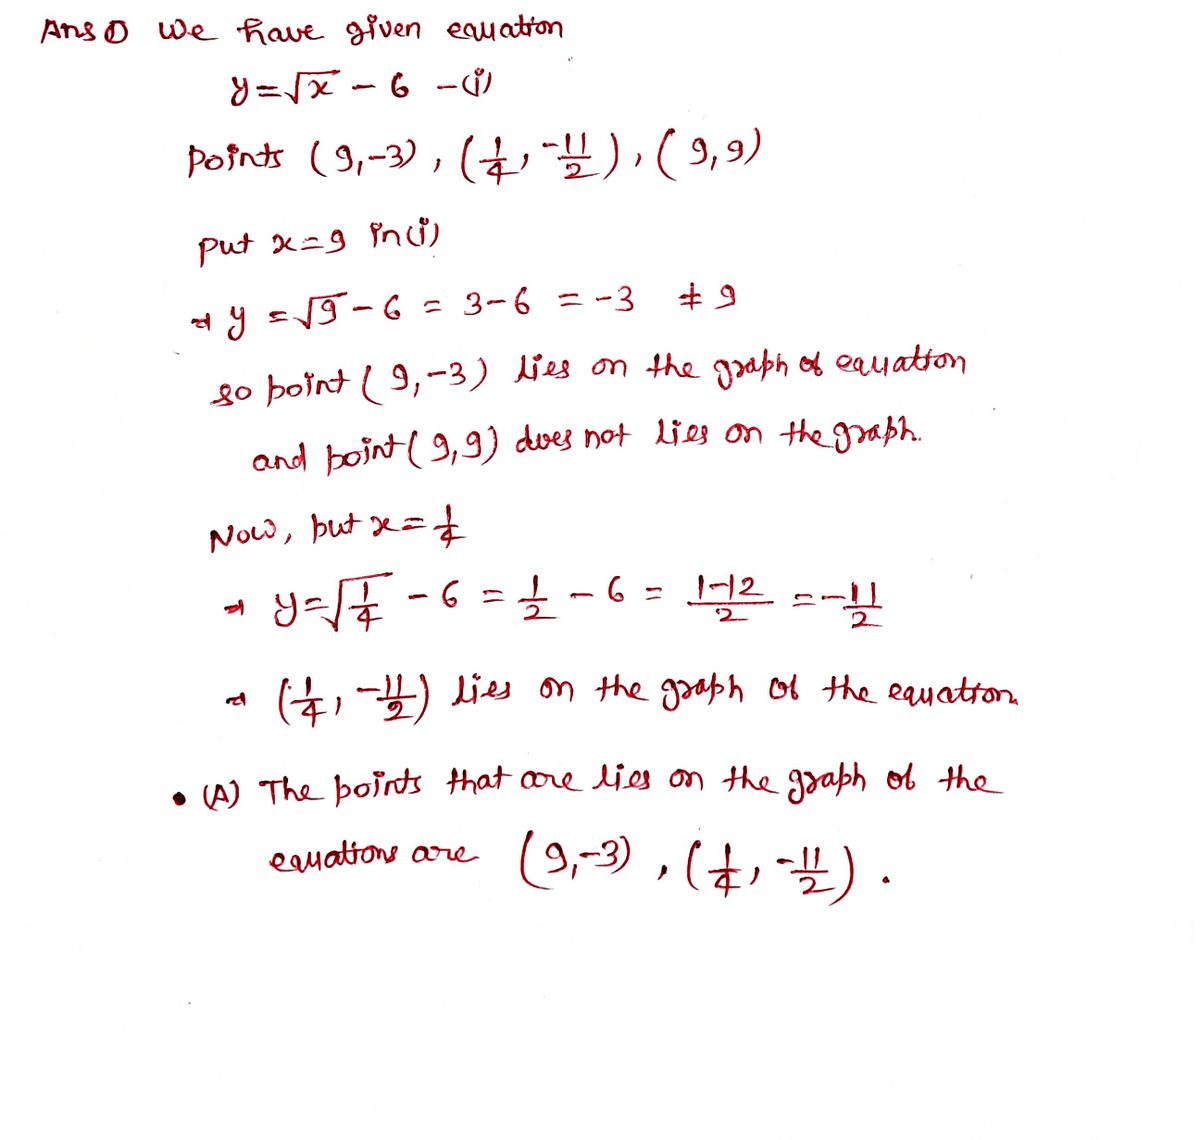 Ans ① We have given equation
y = √x - 6 - (i)
Points (9,-3), (1/4, -11/2), (9,9)
put x=9 in (i)
⇒ y = √9 - 6 = 3-6 = -3 ≠ 9
so point (9,-3) lies on the graph of equation
and point (9,9) does not lies on the graph.
Now, put x = 1/4
⇒ y = √1/4 - 6 = 1/2 - 6 = 1-12/2 = -11/2
⇒ (1/4, -11/2) lies on the graph of the equation.
• (A) The points that are lies on the graph of the
equations are (9,-3), (1/4, -11/2).